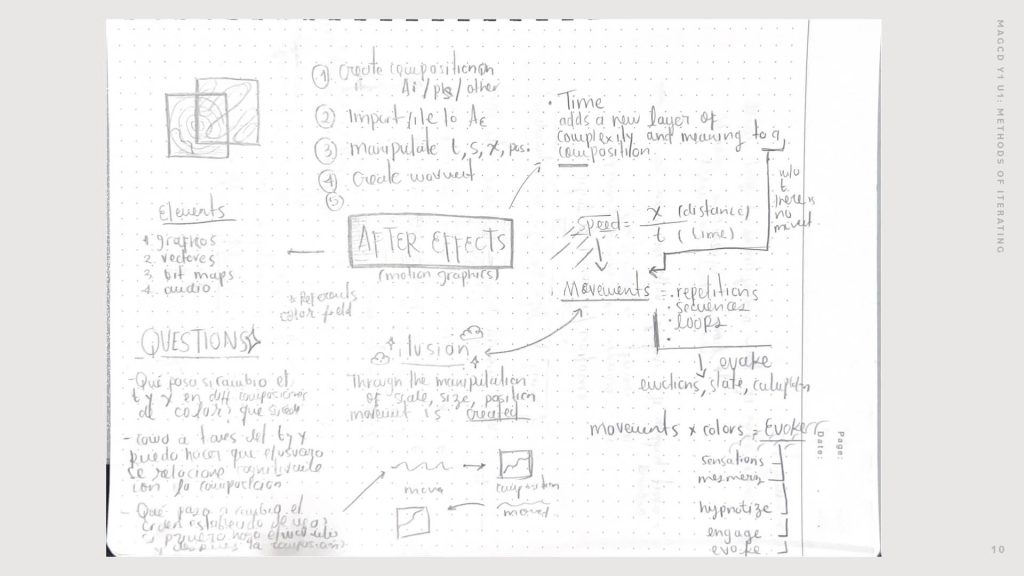 ① Create composition on
Ai/ps/other
② Import file to AE
③ manipulate t, s, x, pos.
④ Create movment
⑤
• Time
adds a new layer of
complexity and meaning to a
composition
w/o
t
there is
no
movmt.
speed = x (distance)
t (time)
Elements
1. graficos
2. vectores
3. bit maps
4. audio
AFTER EFFECTS
(motion graphics)
color field
Movements = • repetitions
• sequences
• loops
•
evoke
emotions, state,
QUESTIONS
- Qué pasa si cambio el
t y v en diff composiciones
de color? que sucede
- como a traves del t y v
puedo hacer que el usuario
se relacione
con la composicion
- Qué pasa si cambio el
orden establecido de usar
primero hago el
y despues la composicion?
ilusion
Through the manipulation
of scale, size, position
movement is created
movements x colors = Evoker
sensations
mesmerz
hypnotize
engage
evoke
composition
Page:
Date:
MAGCD Y1 U1: METHODS OF ITERATING
10